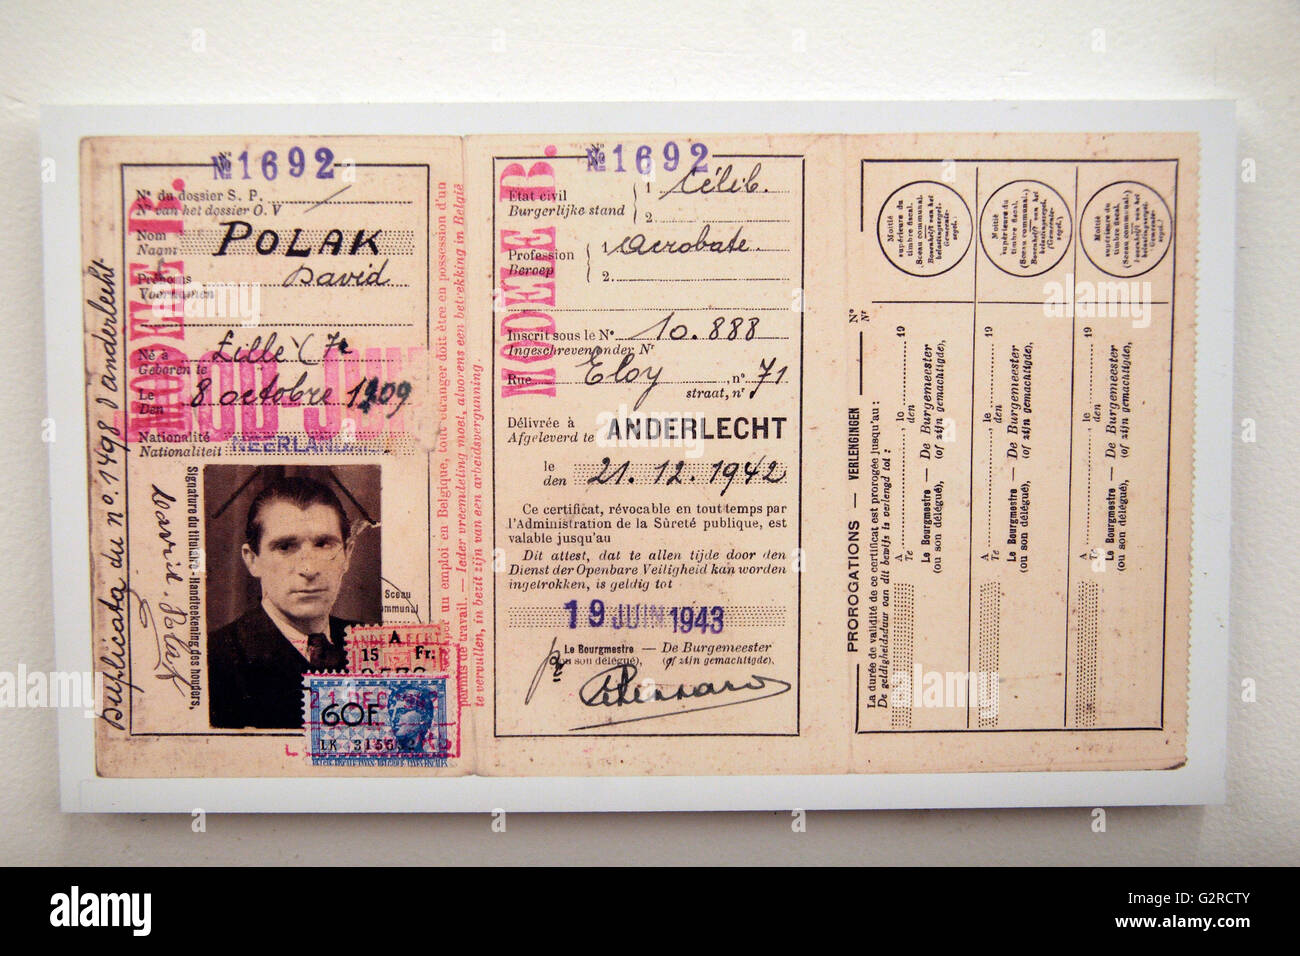 Duplicata du n°. 1498 d'anderlecht.
MODEL B.
№ 1692
N° du dossier S. P.
N° van het dossier O. V
Nom
Naam
POLAK
Prénoms
Voornamen
David
Né à
Geboren te
Lille
Le
Den
8 octobre 1909
Nationalité
Nationaliteit
NEERLAND
JOOD-JUIF
Signature du titulaire - Handteekening des houders,
David. Polak
Sceau
communal
ANDERLECHT
15 Fr.
21 DEC
60F
LK
permis de travail. — Ieder vreemdeling moet, alvorens een betrekking in België
te vervullen, in bezit zijn van een arbeidsvergunning
MODÈLE B.
№ 1692
Etat civil
Burgerlijke stand
1 Célib.
2
Profession
Beroep
1. acrobate.
2.
Inscrit sous le N°
Ingeschreven onder Nr
10.888
Rue Eloy, n° 71
straat, nr
Délivrée à
Afgeleverd te
ANDERLECHT
le
den
21. 12. 1942
Ce certificat, révocable en tout temps par
l'Administration de la Sûreté publique, est
valable jusqu'au
Dit attest, dat te allen tijde door den
Dienst der Openbare Veiligheid kan worden
ingetrokken, is geldig tot
19 JUIN 1943
Le Bourgmestre — De Burgemeester
(ou son délégué), (of zijn gemachtigde),
PROROGATIONS — VERLENGINGEN
La durée de validité de ce certificat est prorogée jusqu'au :
De geldigheidsduur van dit bewijs is verlengd tot :
N°
Nr
Moitié
supérieure du
timbre fiscal.
(Sceau communal.
Bovenhelft van het
belastingzegel.
Gemeente-
zegel.
A le 19
Te den
Le Bourgmestre — De Burgemeester
(ou son délégué), (of zijn gemachtigde),
Moitié
supérieure du
timbre fiscal.
(Sceau communal.)
Bovenhelft van het
belastingzegel.
(Gemeente-
zegel.)
A le 19
Te den
Le Bourgmestre — De Burgemeester
(ou son délégué), (of zijn gemachtigde),
Moitié
supérieure du
timbre fiscal.
(Sceau communal.)
Bovenhelft van het
belastingzegel.
(Gemeente-
zegel.)
A le 19
Te den
Le Bourgmestre — De Burgemeester
(ou son délégué), (of zijn gemachtigde),
alamy
Image ID: G2RCTY
www.alamy.com